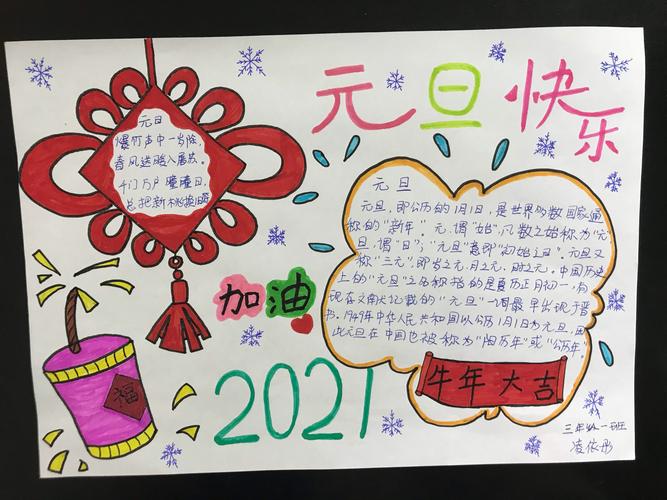 元旦快乐
元日
爆竹声中一岁除,
春风送暖入屠苏。
千门万户曈曈日,
总把新桃换旧符
元旦
元旦,即公历的1月1日,是世界多数国家通
称的“新年”。元,谓“始”,凡数之始称为“元”
旦,谓“日”;“元旦”意即“初始之日”。元旦又
称“三元”,即岁之元,月之元,时之元。中国历史
上的“元旦”之名称指的是夏历正月初一,而
现在文献记载的“元旦”一词最早出现于晋
书,1949年中华人民共和国以公历1月1日为元旦,因
此元旦在中国也被称为“阳历年”或“公历年”。
加油
福
2021
牛年大吉
三年级一班
凌依彤